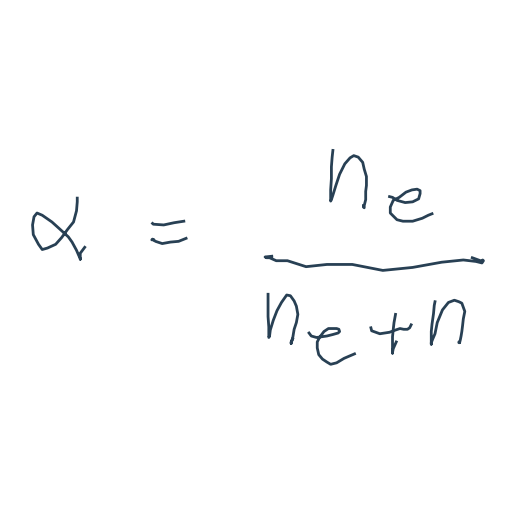 α = \frac{n_e}{n_e + n}